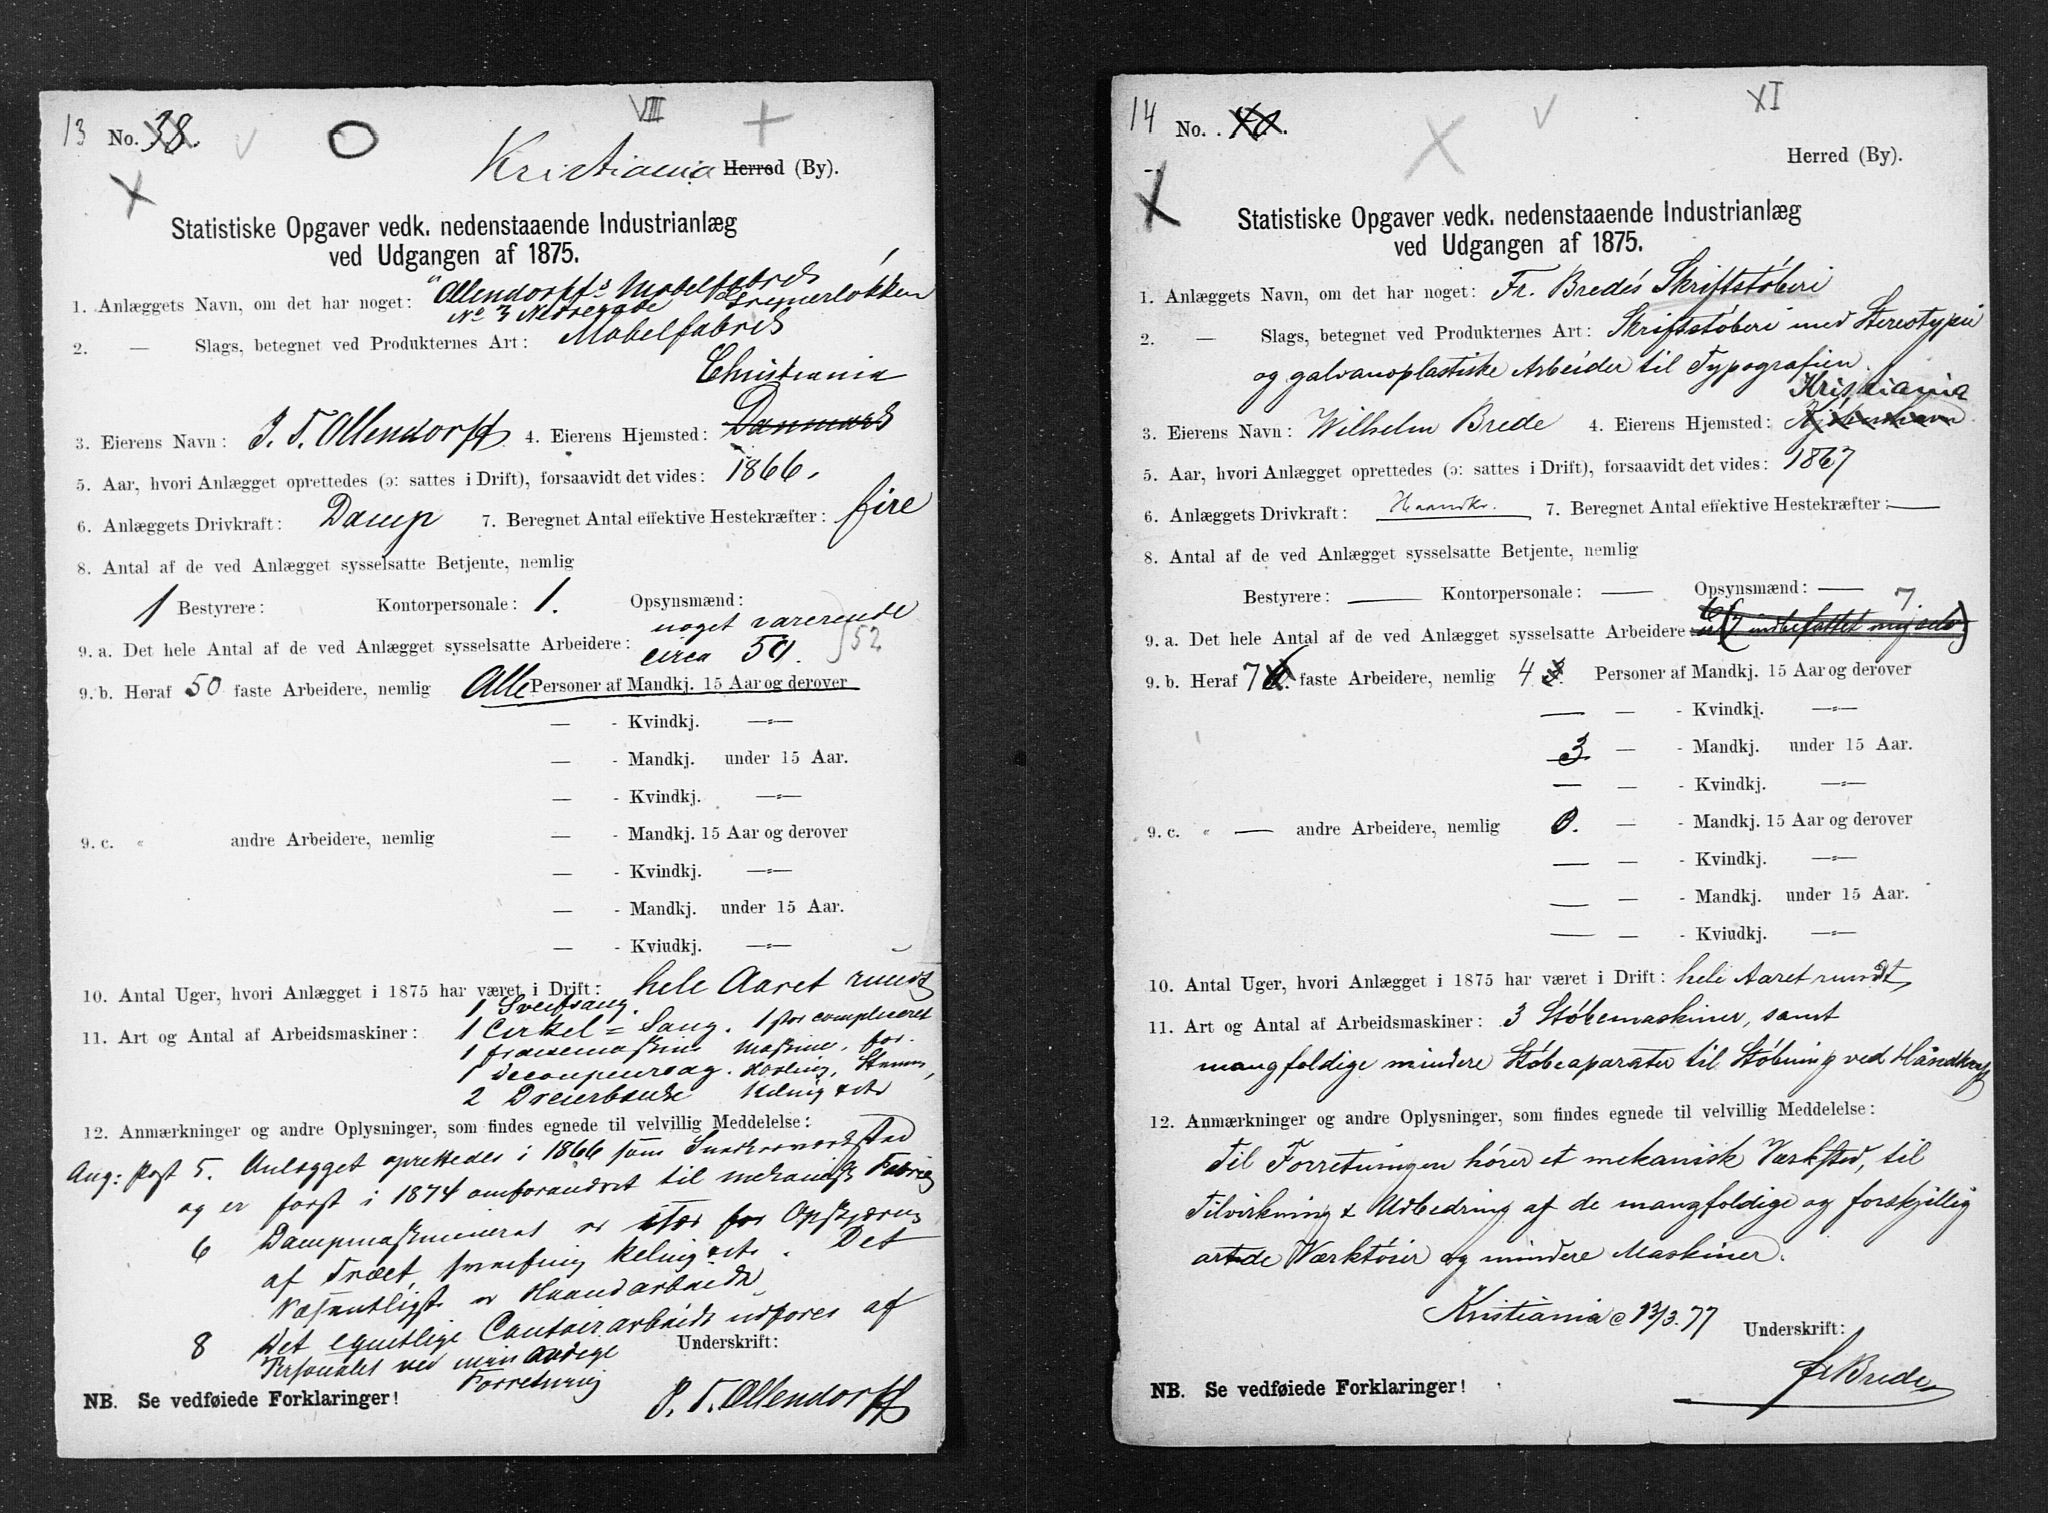 VIII
13 No. 38.
Kristiania Herred (By).
Statistiske Opgaver vedk. nedenstaaende Industrianlæg
ved Udgangen af 1875.
1. Anlæggets Navn, om det har noget: "Allendorffs Møbelfabrik
No 3 Nedregade Grynerløkken
2. — Slags, betegnet ved Produkternes Art: Møbelfabrik
Christiania
3. Eierens Navn: J. T. Allendorff 4. Eierens Hjemsted: Danmark
5. Aar, hvori Anlægget oprettedes (ɔ: sattes i Drift), forsaavidt det vides: 1866.
6. Anlæggets Drivkraft: Damp 7. Beregnet Antal effektive Hestekræfter: fire
8. Antal af de ved Anlægget sysselsatte Betjente, nemlig
1 Bestyrere: Kontorpersonale: 1. Opsynsmænd:
noget varierende
9. a. Det hele Antal af de ved Anlægget sysselsatte Arbeidere: circa 50. 52
9. b. Heraf 50 faste Arbeidere, nemlig Alle Personer af Mandkj. 15 Aar og derover
— - Kvindkj. —"—
— - Mandkj. under 15 Aar.
— - Kvindkj. —"—
9. c. " andre Arbeidere, nemlig — - Mandkj. 15 Aar og derover
— - Kvindkj. —"—
— - Mandkj. under 15 Aar.
— - Kviudkj. —"—
10. Antal Uger, hvori Anlægget i 1875 har været i Drift: hele Aaret rundt
1 Sveifsaug.
11. Art og Antal af Arbeidsmaskiner: 1 Cirkel = Saug. 1 stor compliceret
1 fraesemaskine Maskine, for
1 Decoupeursag. Høvling, Stemm,
2 Dreierbænke Keling & etc
12. Anmærkninger og andre Oplysninger, som findes egnede til velvillig Meddelelse:
Ang: Post 5. Anlægget oprettedes i 1866 som Snedkerværksted
og er først i 1874 omforandret til mekanisk Fabrik
6 Dampmaskineriet er især for Opskjæring
af Træet, sveifing keling etc. Det
Væsentligste er Haandarbeide
8 Det egentlige Contoirarbeide udføres af
Personalet ved min øvrige
Forretning
Underskrift:
J. T. Allendorff
NB. Se vedføiede Forklaringer!
XI
14 No. 40.
Herred (By).
Statistiske Opgaver vedk. nedenstaaende Industrianlæg
ved Udgangen af 1875.
1. Anlæggets Navn, om det har noget: Fr. Bredes Skriftstøberi
2. — Slags, betegnet ved Produkternes Art: Skriftstøberi med Stereotypi
og galvanoplastiske Arbeider til Typografien.
Kristiania
3. Eierens Navn: Wilhelm Brede 4. Eierens Hjemsted: Kjøbenhavn
5. Aar, hvori Anlægget oprettedes (ɔ: sattes i Drift), forsaavidt det vides: 1867
6. Anlæggets Drivkraft: Haandkr. 7. Beregnet Antal effektive Hestekræfter: —
8. Antal af de ved Anlægget sysselsatte Betjente, nemlig
Bestyrere: — Kontorpersonale: — Opsynsmænd: —
7.
9. a. Det hele Antal af de ved Anlægget sysselsatte Arbeidere indbefattet mig selv)
9. b. Heraf 7 faste Arbeidere, nemlig 4 3. Personer af Mandkj. 15 Aar og derover
— — - Kvindkj. —"—
3 — - Mandkj. under 15 Aar.
— — - Kvindkj. —"—
9. c. " — andre Arbeidere, nemlig 0. — - Mandkj. 15 Aar og derover
— — - Kvindkj. —"—
— — - Mandkj. under 15 Aar.
— — - Kviudkj. —"—
10. Antal Uger, hvori Anlægget i 1875 har været i Drift: hele Aaret rundt
11. Art og Antal af Arbeidsmaskiner: 3 Støbemaskiner, samt
mangfoldige mindre Støbeaparater til Støbning ved Håndkraft
12. Anmærkninger og andre Oplysninger, som findes egnede til velvillig Meddelelse:
Til Forretningen hører et mekanisk Værksted, til
Tilvirkning & Udbedring af de mangfoldige og forskjellig
artede Værktøier og mindere Maskiner.
Kristiania 13/3.77
Underskrift:
Fr Brede
NB. Se vedføiede Forklaringer!